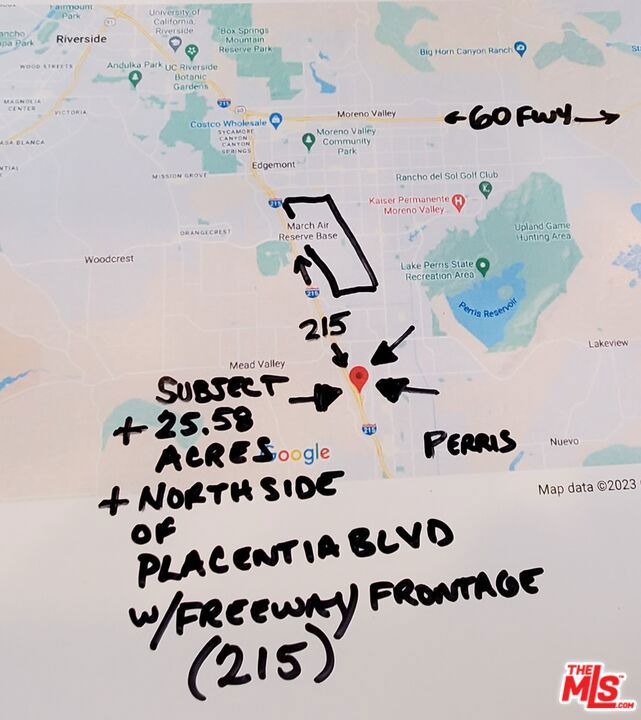 Fairmount
Park
University of
California,
Riverside
Box Springs
Mountain
Reserve Park
Riverside
Big Horn Canyon Ranch
WOOD STREETS
Andulka Park
UC Riverside
Botanic
Gardens
MAGNOLIA
CENTER
VICTORIA
215
60
Moreno Valley
← 60 FWY →
Costco Wholesale
SYCAMORE
CANYON
CANYON
SPRINGS
Moreno Valley
Community
Park
CASA BLANCA
Edgemont
MISSION GROVE
Rancho del Sol Golf Club
Kaiser Permanente
Moreno Valley...
215
March Air
Reserve Base
ORANGECREST
Upland Game
Hunting Area
Woodcrest
Lake Perris State
Recreation Area
215
Perris Reservoir
215
Lakeview
Mead Valley
SUBJECT
+ 25.58
ACRES
215
Google
PERRIS
Nuevo
Map data ©2023
+ NORTH SIDE
OF
PLACENTIA BLVD
W/FREEWAY FRONTAGE
(215)
THE
MLS™
.COM